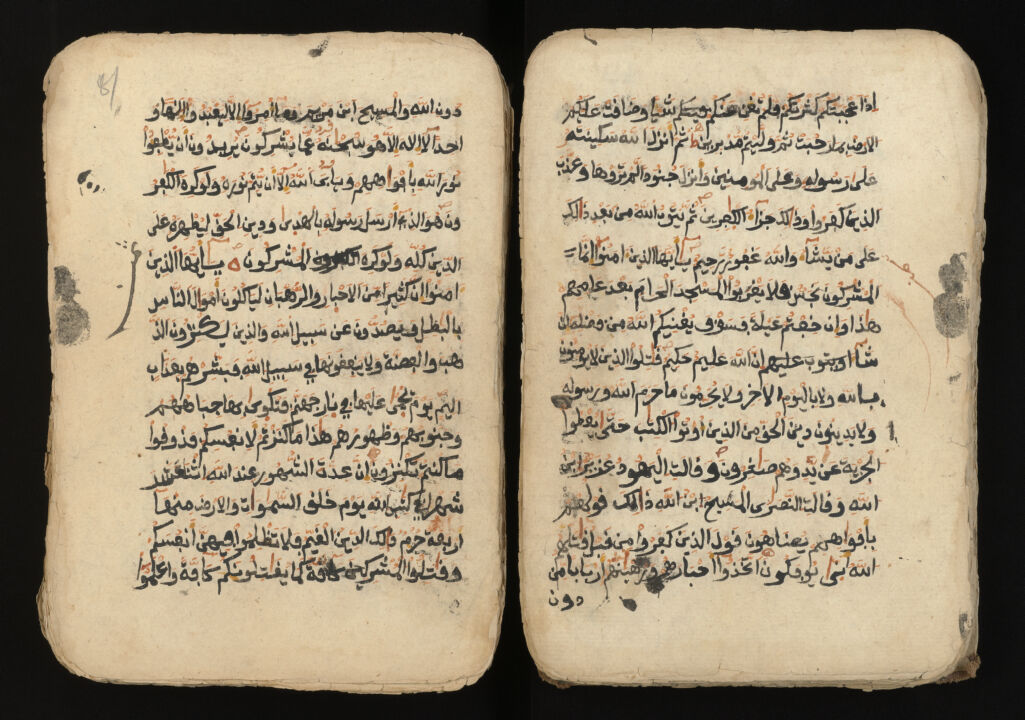 اذا عجبتكم كثرتكم فلم تغن عنكم شيا وضاقت عليكم
الارض بما رحبت ثم وليتم مدبرين ثم انزل الله سكينته
على رسوله وعلى المومنين وانزل جنودا لم تروها وعذب
الذين كفروا وذلك جزاء الكفرين ثم يتوب الله من بعد ذلك
على من يشاء والله غفور رحيم يايها الذين امنوا انما
المشركون نجس فلا يقربوا المسجد الحرام بعد عامهم
هذا وان خفتم عيلة فسوف يغنيكم الله من فضله ان
شاء ان الله عليم حكيم قتلوا الذين لا يومنون
بالله ولا باليوم الاخر ولا يحرمون ما حرم الله ورسوله
ولا يدينون دين الحق من الذين اوتوا الكتب حتى يعطوا
الجزية عن يد وهم صغرون وقالت اليهود عزير ابن
الله وقالت النصرى المسيح ابن الله ذلك قولهم
بافواههم يضاهون قول الذين كفروا من قبل قتلهم
الله انى يوفكون اتخذوا احبارهم ورهبنهم اربابا من
دون
81
دون الله والمسيح ابن مريم وما امروا الا ليعبدوا الها و
احدا لا اله الا هو سبحنه عما يشركون يريدون ان يطفوا
نور الله بافواههم ويابى الله الا ان يتم نوره ولو كره الكفر
ون هو الذي ارسل رسوله بالهدى ودين الحق ليظهره على
الدين كله ولو كره المشركون يايها الذين
امنوا ان كثيرا من الاحبار والرهبان لياكلون اموال الناس
بالبطل ويصدون عن سبيل الله والذين يكنزون الذ
هب والفضة ولا ينفقونها في سبيل الله فبشرهم بعذاب
اليم يوم يحمى عليها في نار جهنم فتكوى بها جباههم
وجنوبهم وظهورهم هذا ما كنزتم لانفسكم فذوقوا
ما كنتم تكنزون ان عدة الشهور عند الله اثنا عشر
شهرا في كتب الله يوم خلق السموات والارض منها
اربعة حرم ذلك الدين القيم ولا تظلموا فيهن انفسكم
وقتلوا المشركين كافة كما يقتلونكم كافة واعلموا